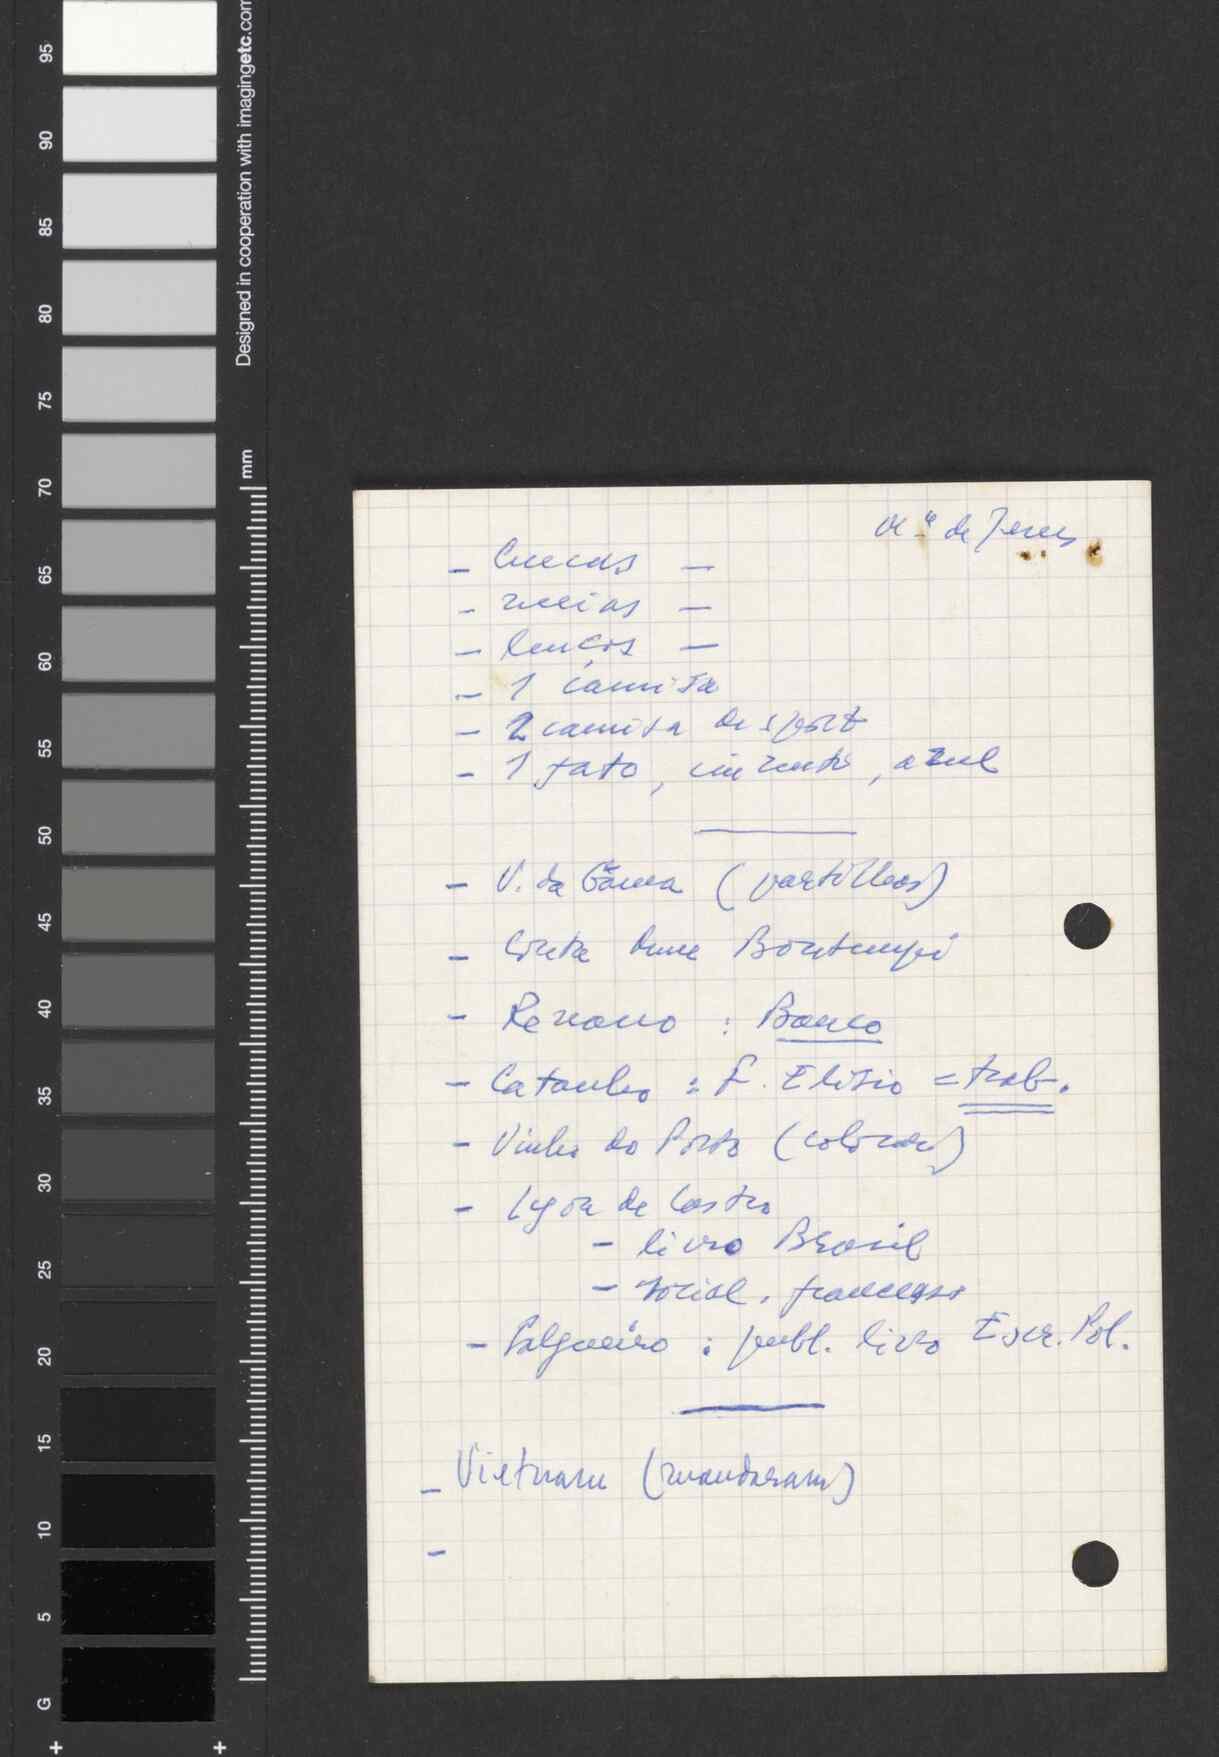 95
90
85
80
75
70
65
60
55
50
45
40
35
30
25
20
15
10
5
G
Designed in cooperation with imagingetc.com
mm
de Jesus
- Cuecas -
- meias -
- lenços -
- 1 camisa
- 2 camisa de sport
- 1 fato, cinzento, azul
- V. da Gama (partilhas)
- Conta Bontempi
- Renano : Banco
- Catanho : F. Elísio = trab.
- Vinho do Porto (colorau)
- Lygia de Castro
- livro Brasil
- social. francesas
- Salgueiro : publ. livro Escr. Pol.
- Vietnam (mandaram)
-